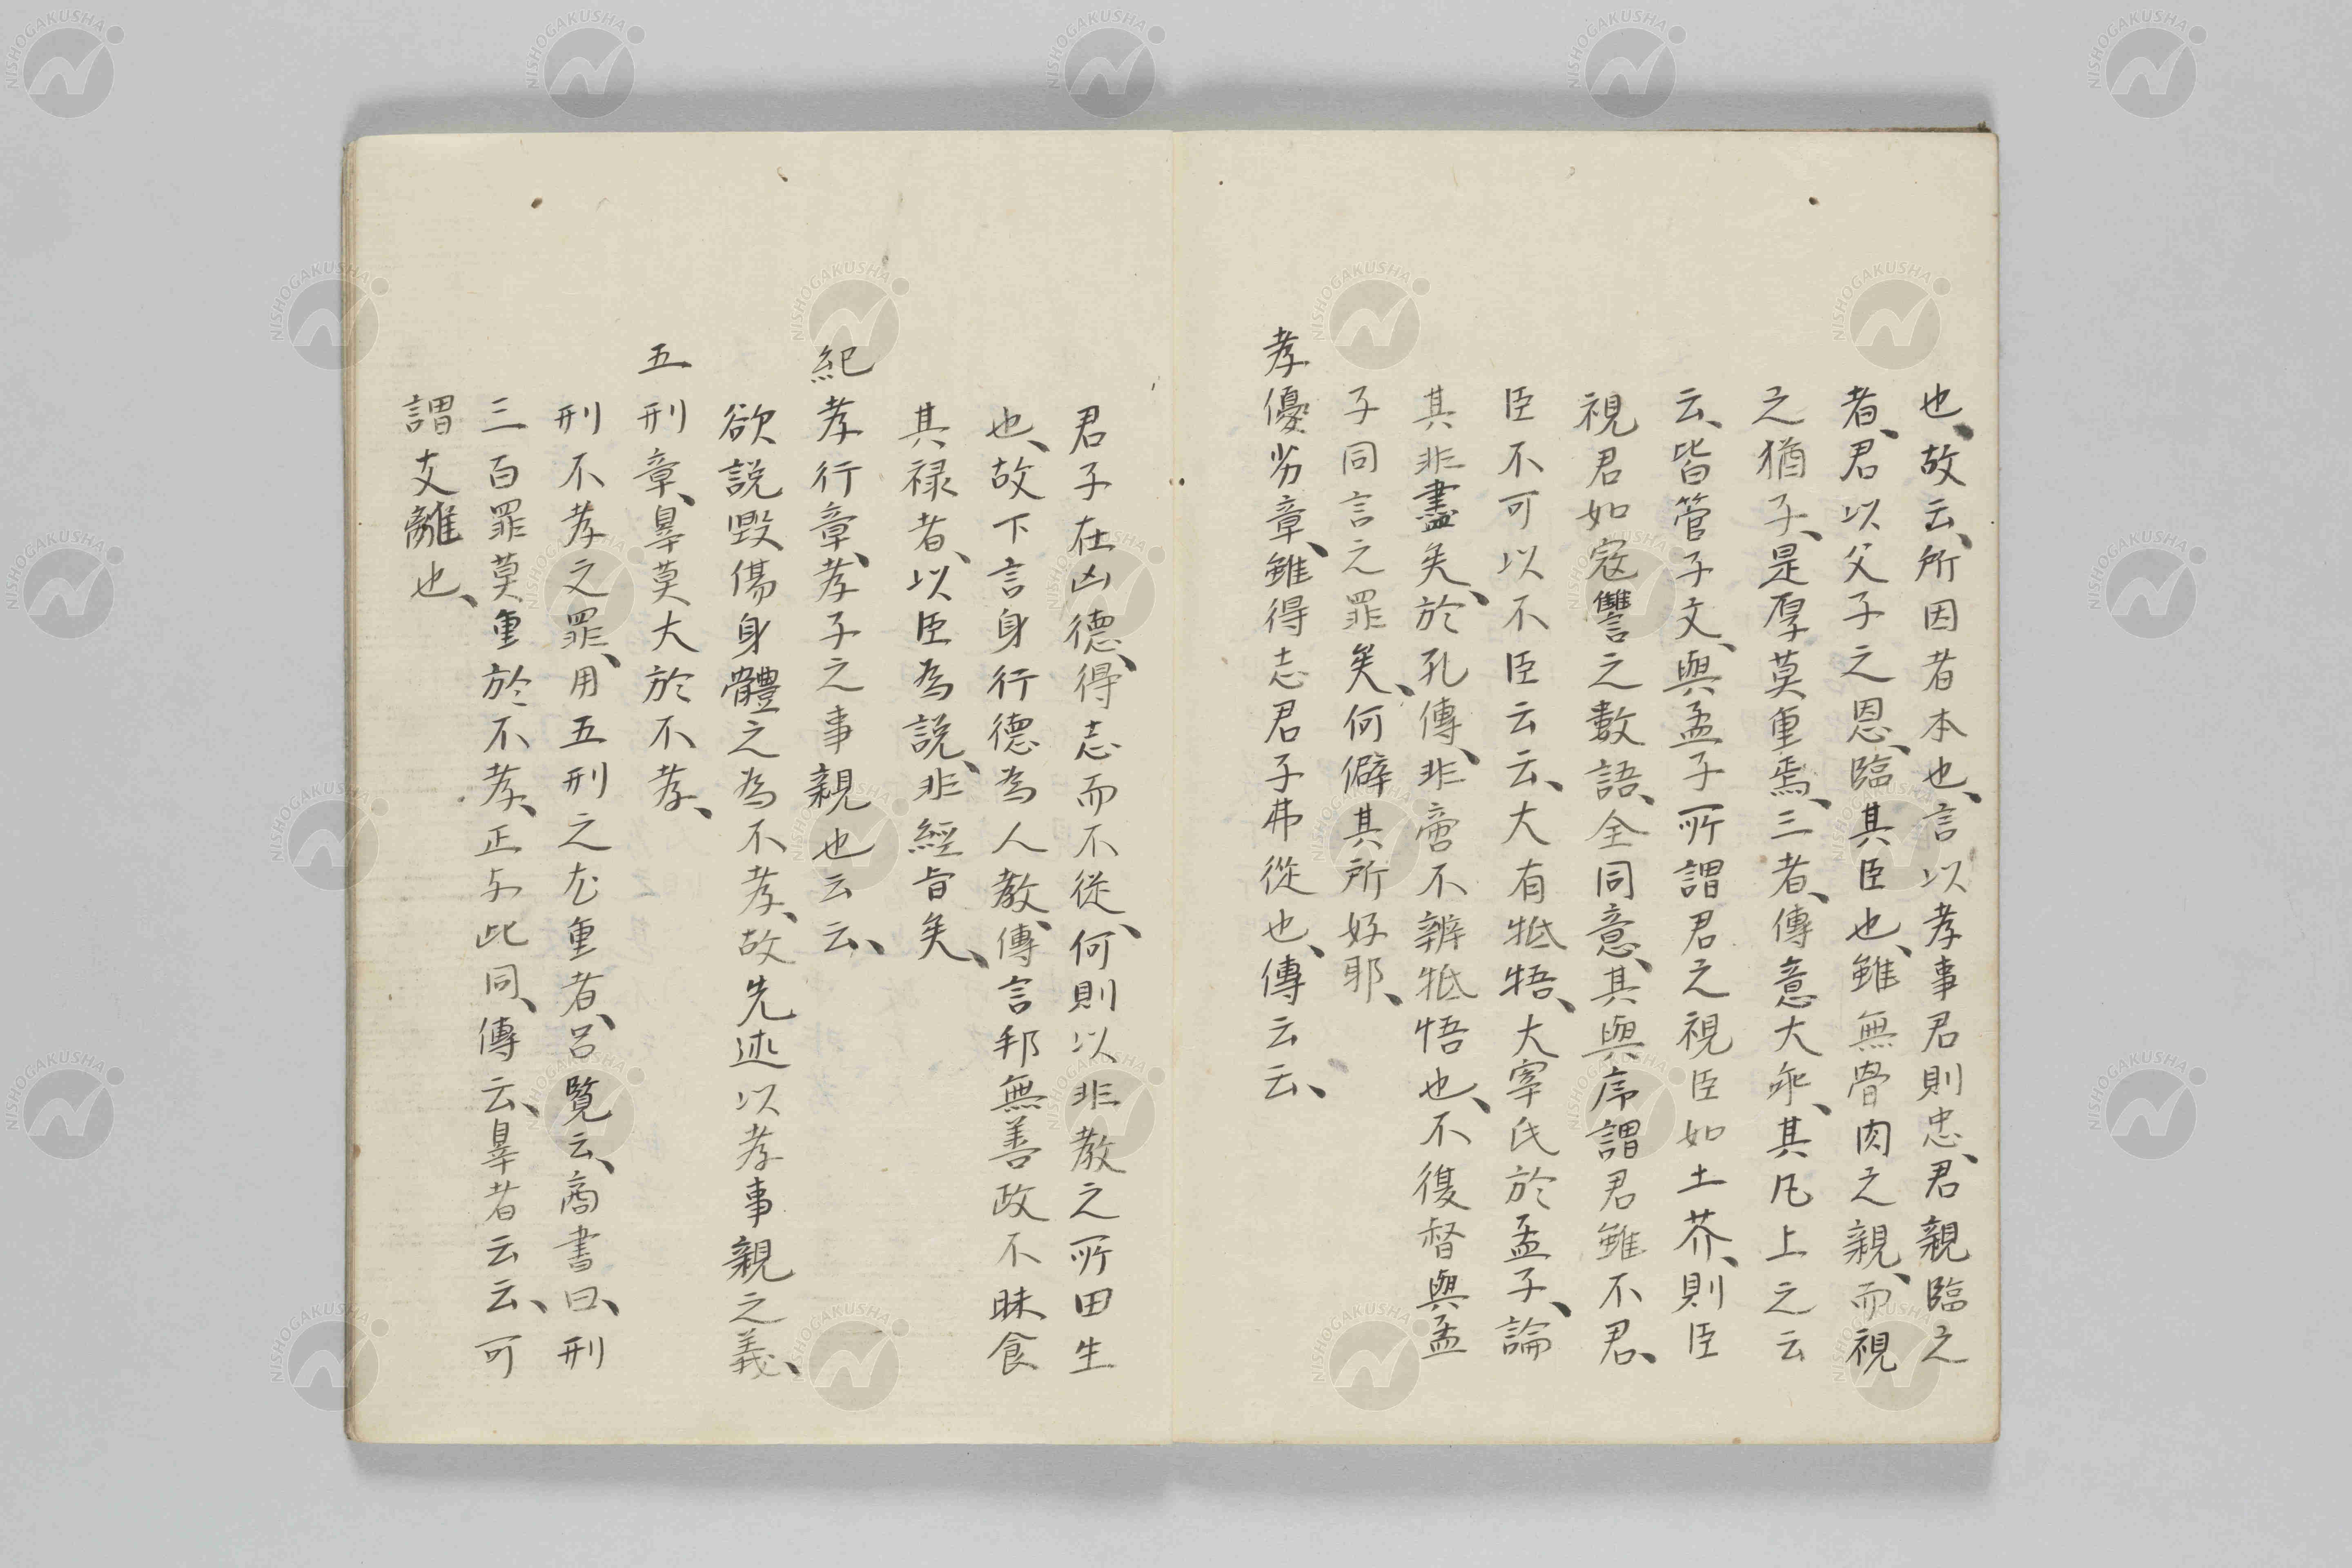 也、故云、所因者本也、言以孝事君則忠、君親臨之
者、君以父子之恩、臨其臣也、雖無骨肉之親、而視
之猶子、是厚莫重焉、三者、傳意大乖、其凡上之云
云、皆管子文、與孟子所謂君之視臣如土芥、則臣
視君如寇讐之數語、全同意、其與序謂君雖不君、
臣不可以不臣云云、大有牴牾、大宰氏於孟子、論
其非盡矣、於孔傳、非啻不辨牴悟也、不復督與孟
子同言之罪矣、何僻其所好耶、
孝優劣章、雖得志君子弗從也、傳云云、
君子在凶德、得志而不從、何則以非教之所由生
也、故下言身行德為人教、傳言邦無善政不昧食
其禄者、以臣為説、非經旨矣、
紀孝行章、孝子之事親也云云、
欲説毀傷身體之為不孝、故先述以孝事親之義、
五刑章、辠莫大於不孝、
刑不孝之罪、用五刑之尤重者、呂覽云、商書曰、刑
三百罪莫重於不孝、正与此同、傳云、辠者云云、可
謂支離也、
NISHOGAKUSHA